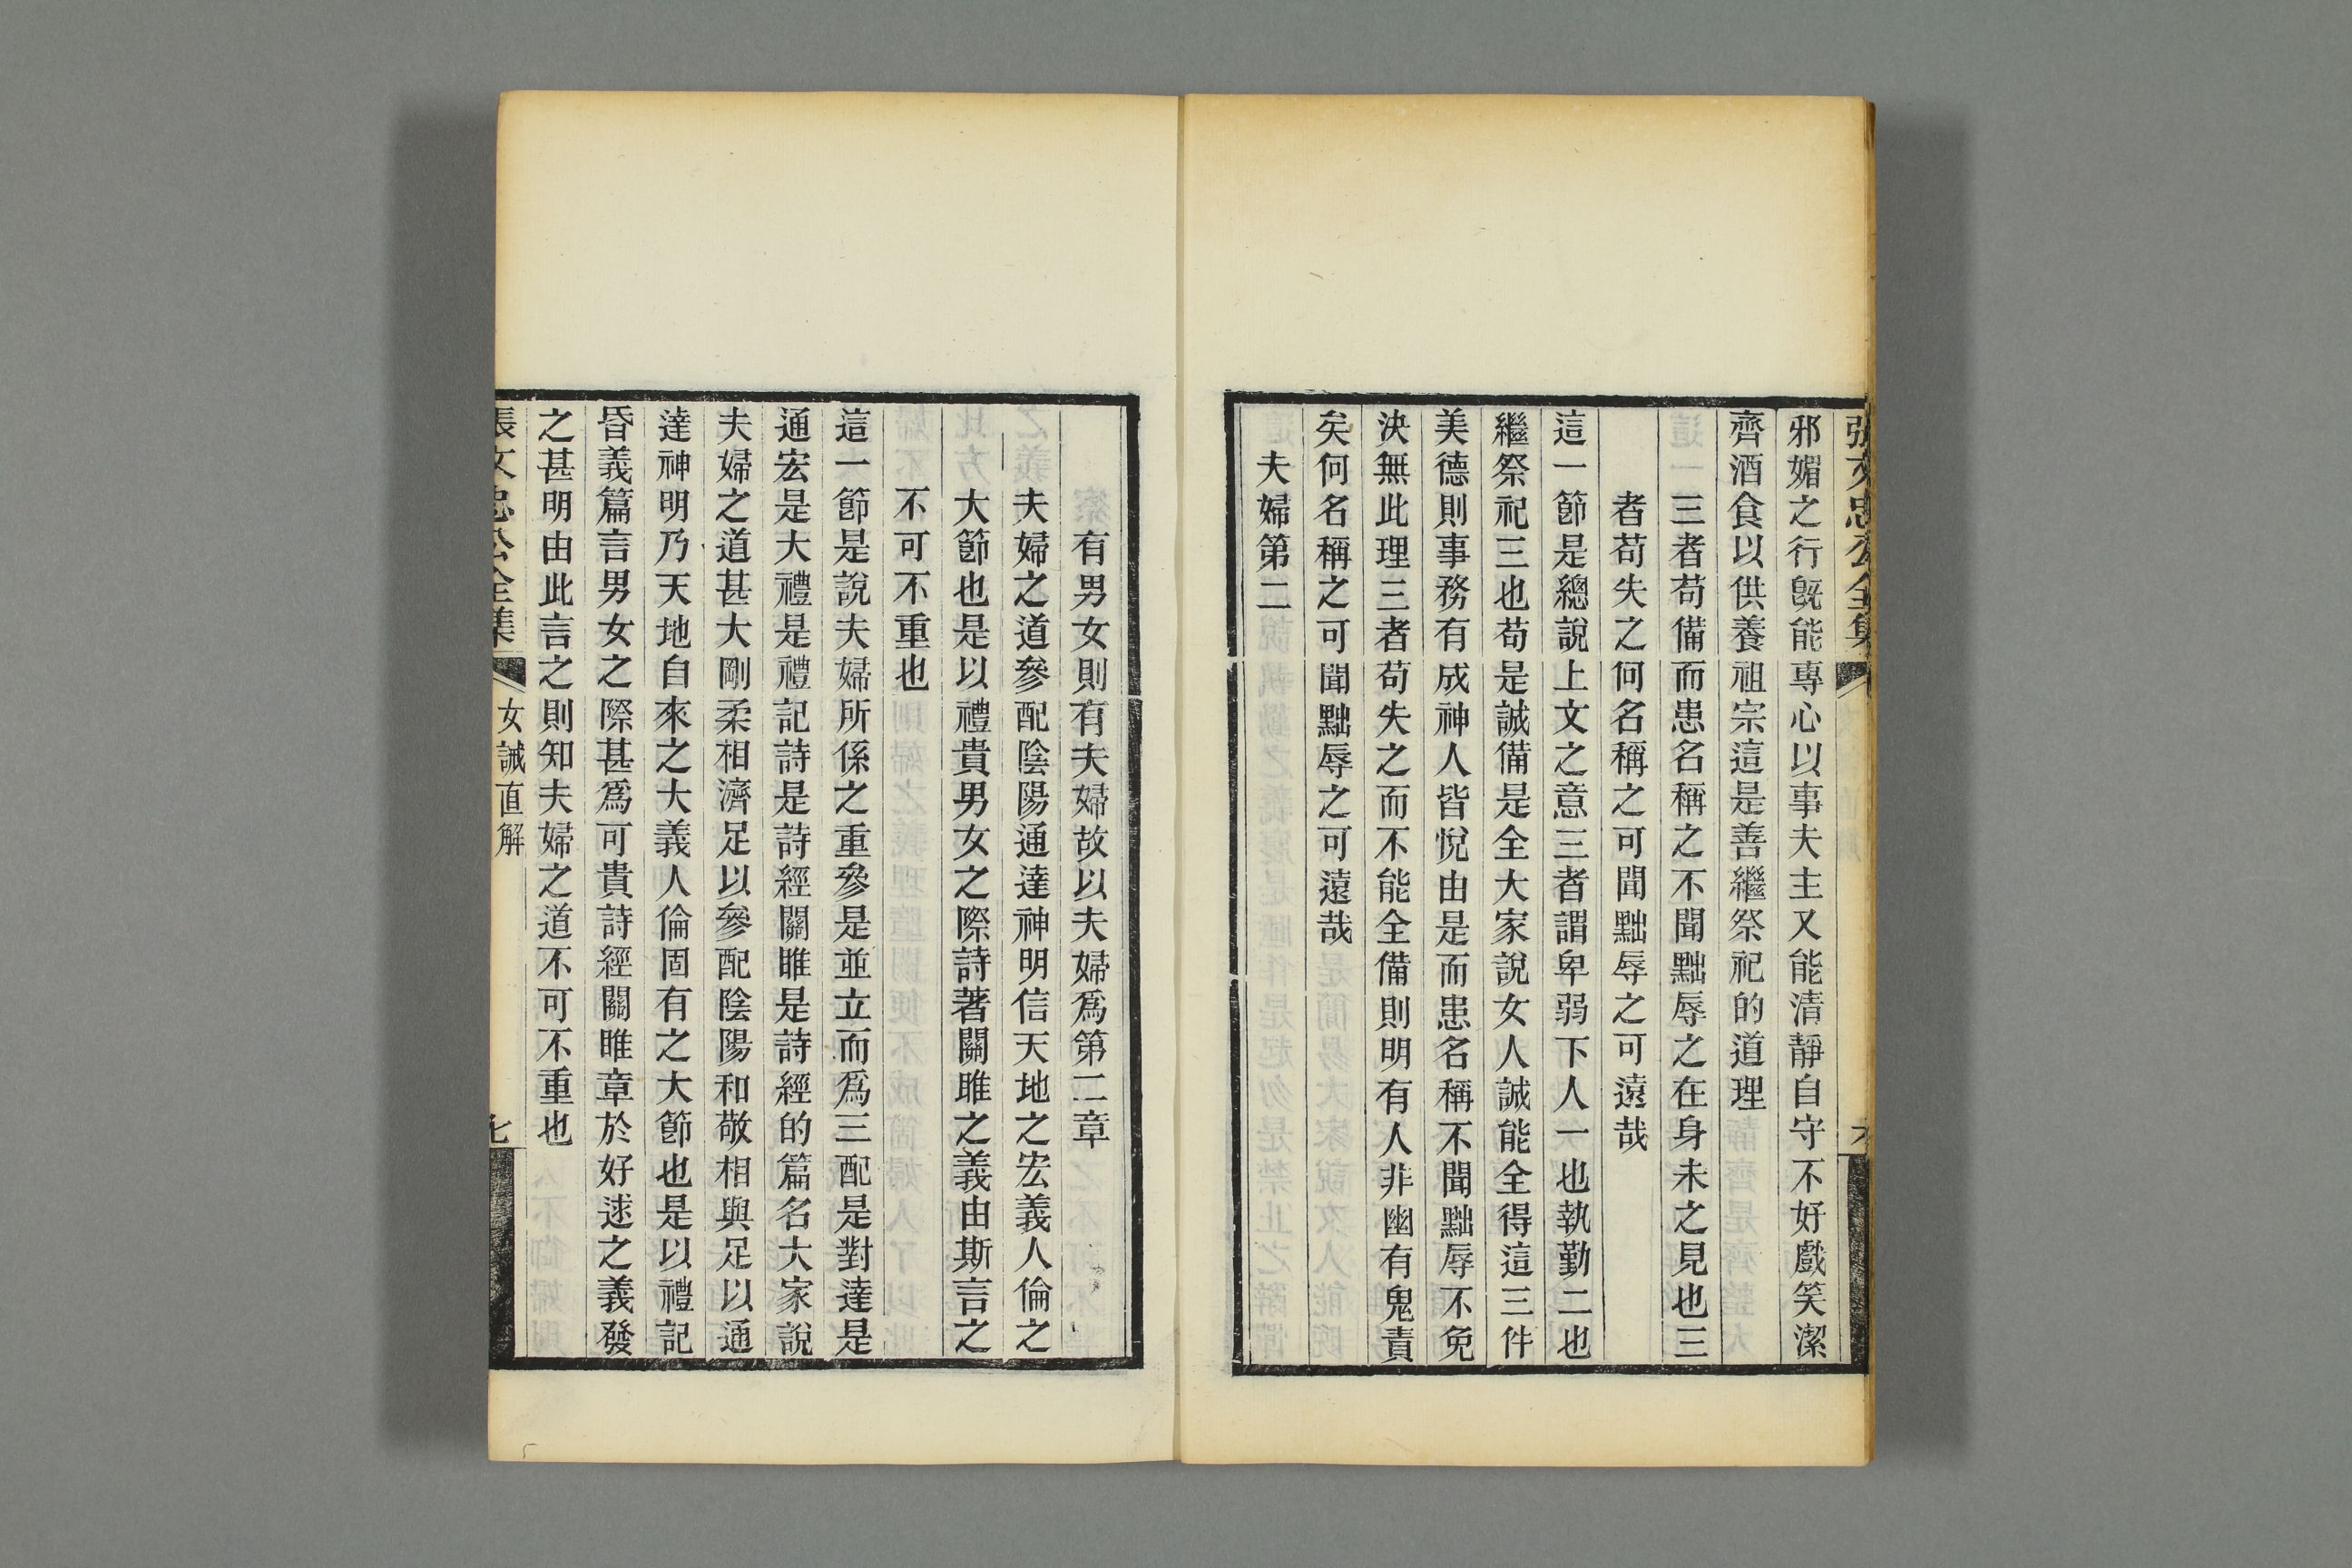 張文忠公全集
邪媚之行旣能專心以事夫主又能清靜自守不好戲笑潔
齊酒食以供養祖宗這是善繼祭祀的道理
三者苟備而患名稱之不聞黜辱之在身未之見也三
者苟失之何名稱之可聞黜辱之可遠哉
這一節是總說上文之意三者謂卑弱下人一也執勤二也
繼祭祀三也苟是誠備是全大家說女人誠能全得這三件
美德則事務有成神人皆悅由是而患名稱不聞黜辱不免
決無此理三者苟失之而不能全備則明有人非幽有鬼責
矣何名稱之可聞黜辱之可遠哉
夫婦第二
有男女則有夫婦故以夫婦爲第二章
夫婦之道參配陰陽通達神明信天地之宏義人倫之
大節也是以禮貴男女之際詩著關雎之義由斯言之
不可不重也
這一節是說夫婦所係之重參是並立而爲三配是對達是
通宏是大禮是禮記詩是詩經關雎是詩經的篇名大家說
夫婦之道甚大剛柔相濟足以參配陰陽和敬相與足以通
達神明乃天地自來之大義人倫固有之大節也是以禮記
昏義篇言男女之際甚爲可貴詩經關雎章於好逑之義發
之甚明由此言之則知夫婦之道不可不重也
張文忠公全集 女誡直解 七